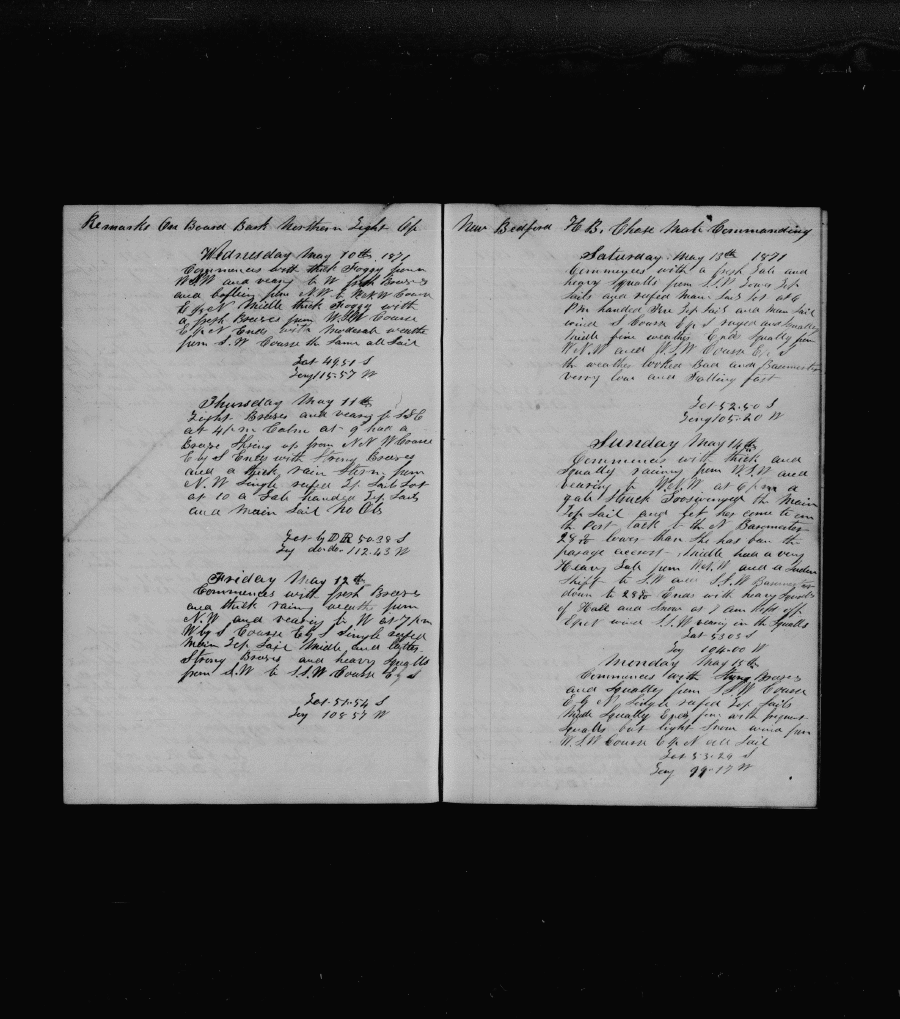 Remarks On Board Bark Northern Light Of
Wednesday May 10th 1871
Commences with thick Foggy from
W.S.W and vearing to W fresh Breeses
and bafling from N.W to W.N.W Course
E by N Middle thick Foggy with
a fresh Breeses from W.S.W Course
E by N Ends with moderate weather
from S.W Course the Same all Sail
Lat 49.51 S
Long 115.57 W
Thursday May 11th
Light Breeses and vearing to S.E
at 4 pm Calm at 9 had a
Breeze Spring up from N N W Course
E by S Ends with Strong Breeses
and a thick rain Storm from
N.W Single reefed Top Sails Sot
at 10 a Gale handed Top Sails
and Main Sail No Obs
Lat by D R 50.38 S
Long do do 112.43 W
Friday May 12th
Commences with fresh Breeses
and thick rainy weather from
N.W and vearing to W at 7 pm
W by S Course E by S Single reefed
Main Top Sail Middle and latter
Strong Breeses and heavy Squalls
from S.W to S.S.W Course E by S
Lat 51.54 S
Long 108.57 W
New Bedford H B. Chase Mate Commanding
Saturday May 13th 1871
Commences with a fresh Gale and
heavy Squalls from S.S.W Lower Top
Sails and reefed Main Sail Sot at 6
Pm handed Fore Top Sail and Main Sail
wind S Course E by S ruged and Squally
Middle fine weather Ends Squally from
W.N.W and W.S.W Course E by S
the weather looked Bad and Baromester
verry low and Falling fast
Lat 52.50 S
Long 105.20 W
Sunday May 14th
Commences with thick and
Squally rainny from W.S.W and
vearing to W.N.W at 6 pm a
gale Struck the Main
Top Sail and let her come to on
the Port tack to the N Baromester
28 lower than She has ban the
pasage accrost Middle had a very
Heavy Gale from W.S.W and a Suden
Shift to S.W and S.S.W Baromester
down to 28 Ends with heavy Squalls
of Hail and Snow at 7 am Kept off
E by N wind S.S.W vearing in the Squalls
Lat 53.03 S
Long 104.00 W
Monday May 15th
Commences with Strong Breeses
and Squally from S.S.W Course
E by N Single reefed Top Sails
Midle Squally Ends fine with frequent
Squalls but light Snow wind from
W.S.W Course E by N all Sail
Lat 53.29 S
Long 99.17 W